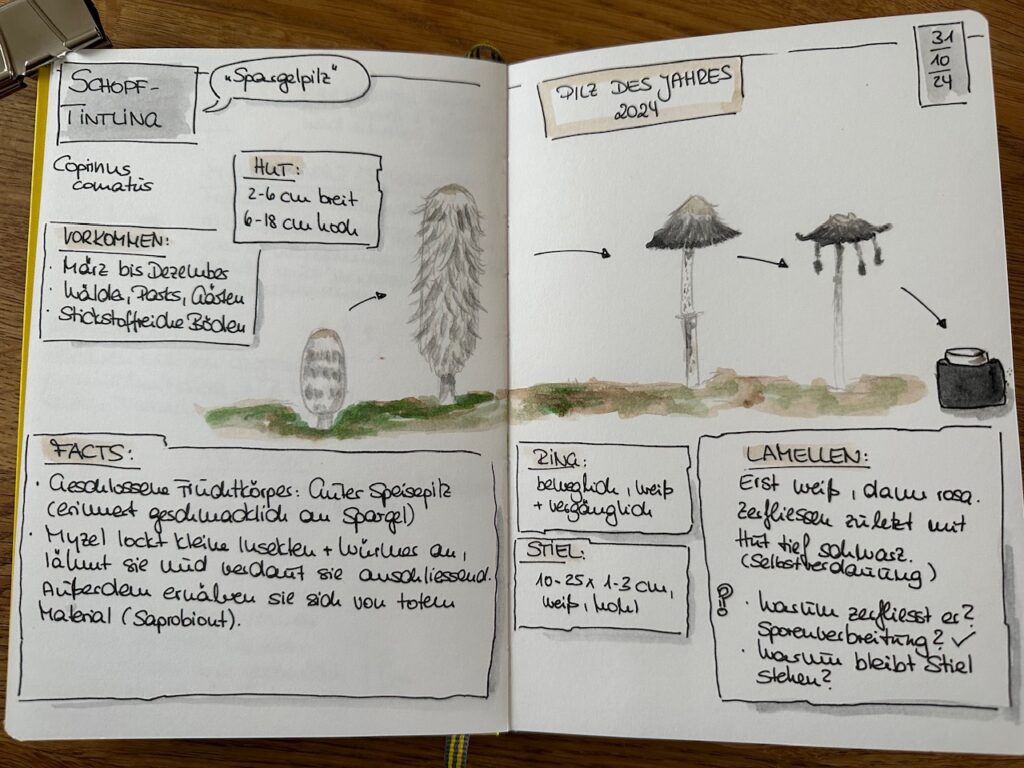 SCHOPF-
TINTLING
„Spargelpilz“
Coprinus
comatus
HUT:
2-6 cm breit
6-18 cm hoch
VORKOMMEN:
· März bis Dezember
· Wälder, Parks, Gärten
· Stickstoffreiche Böden
FACTS:
· Geschlossene Fruchtkörper: Guter Speisepilz
(erinnert geschmacklich an Spargel)
· Myzel lockt kleine Insekten + Würmer an,
lähmt sie und verdaut sie anschliessend.
Außerdem ernähren sie sich von totem
Material (Saprobiont).
PILZ DES JAHRES
2024
31
10
24
RING:
beweglich, weiß
+ vergänglich
STIEL:
10-25 x 1-3 cm,
weiß, hohl
LAMELLEN:
Erst weiß, dann rosa.
Zerfliessen zuletzt mit
Hut tief schwarz.
(Selbstverdauung)
?! · Warum zerfliesst er?
Sporenverbreitung? ✓
· Warum bleibt Stiel
stehen?